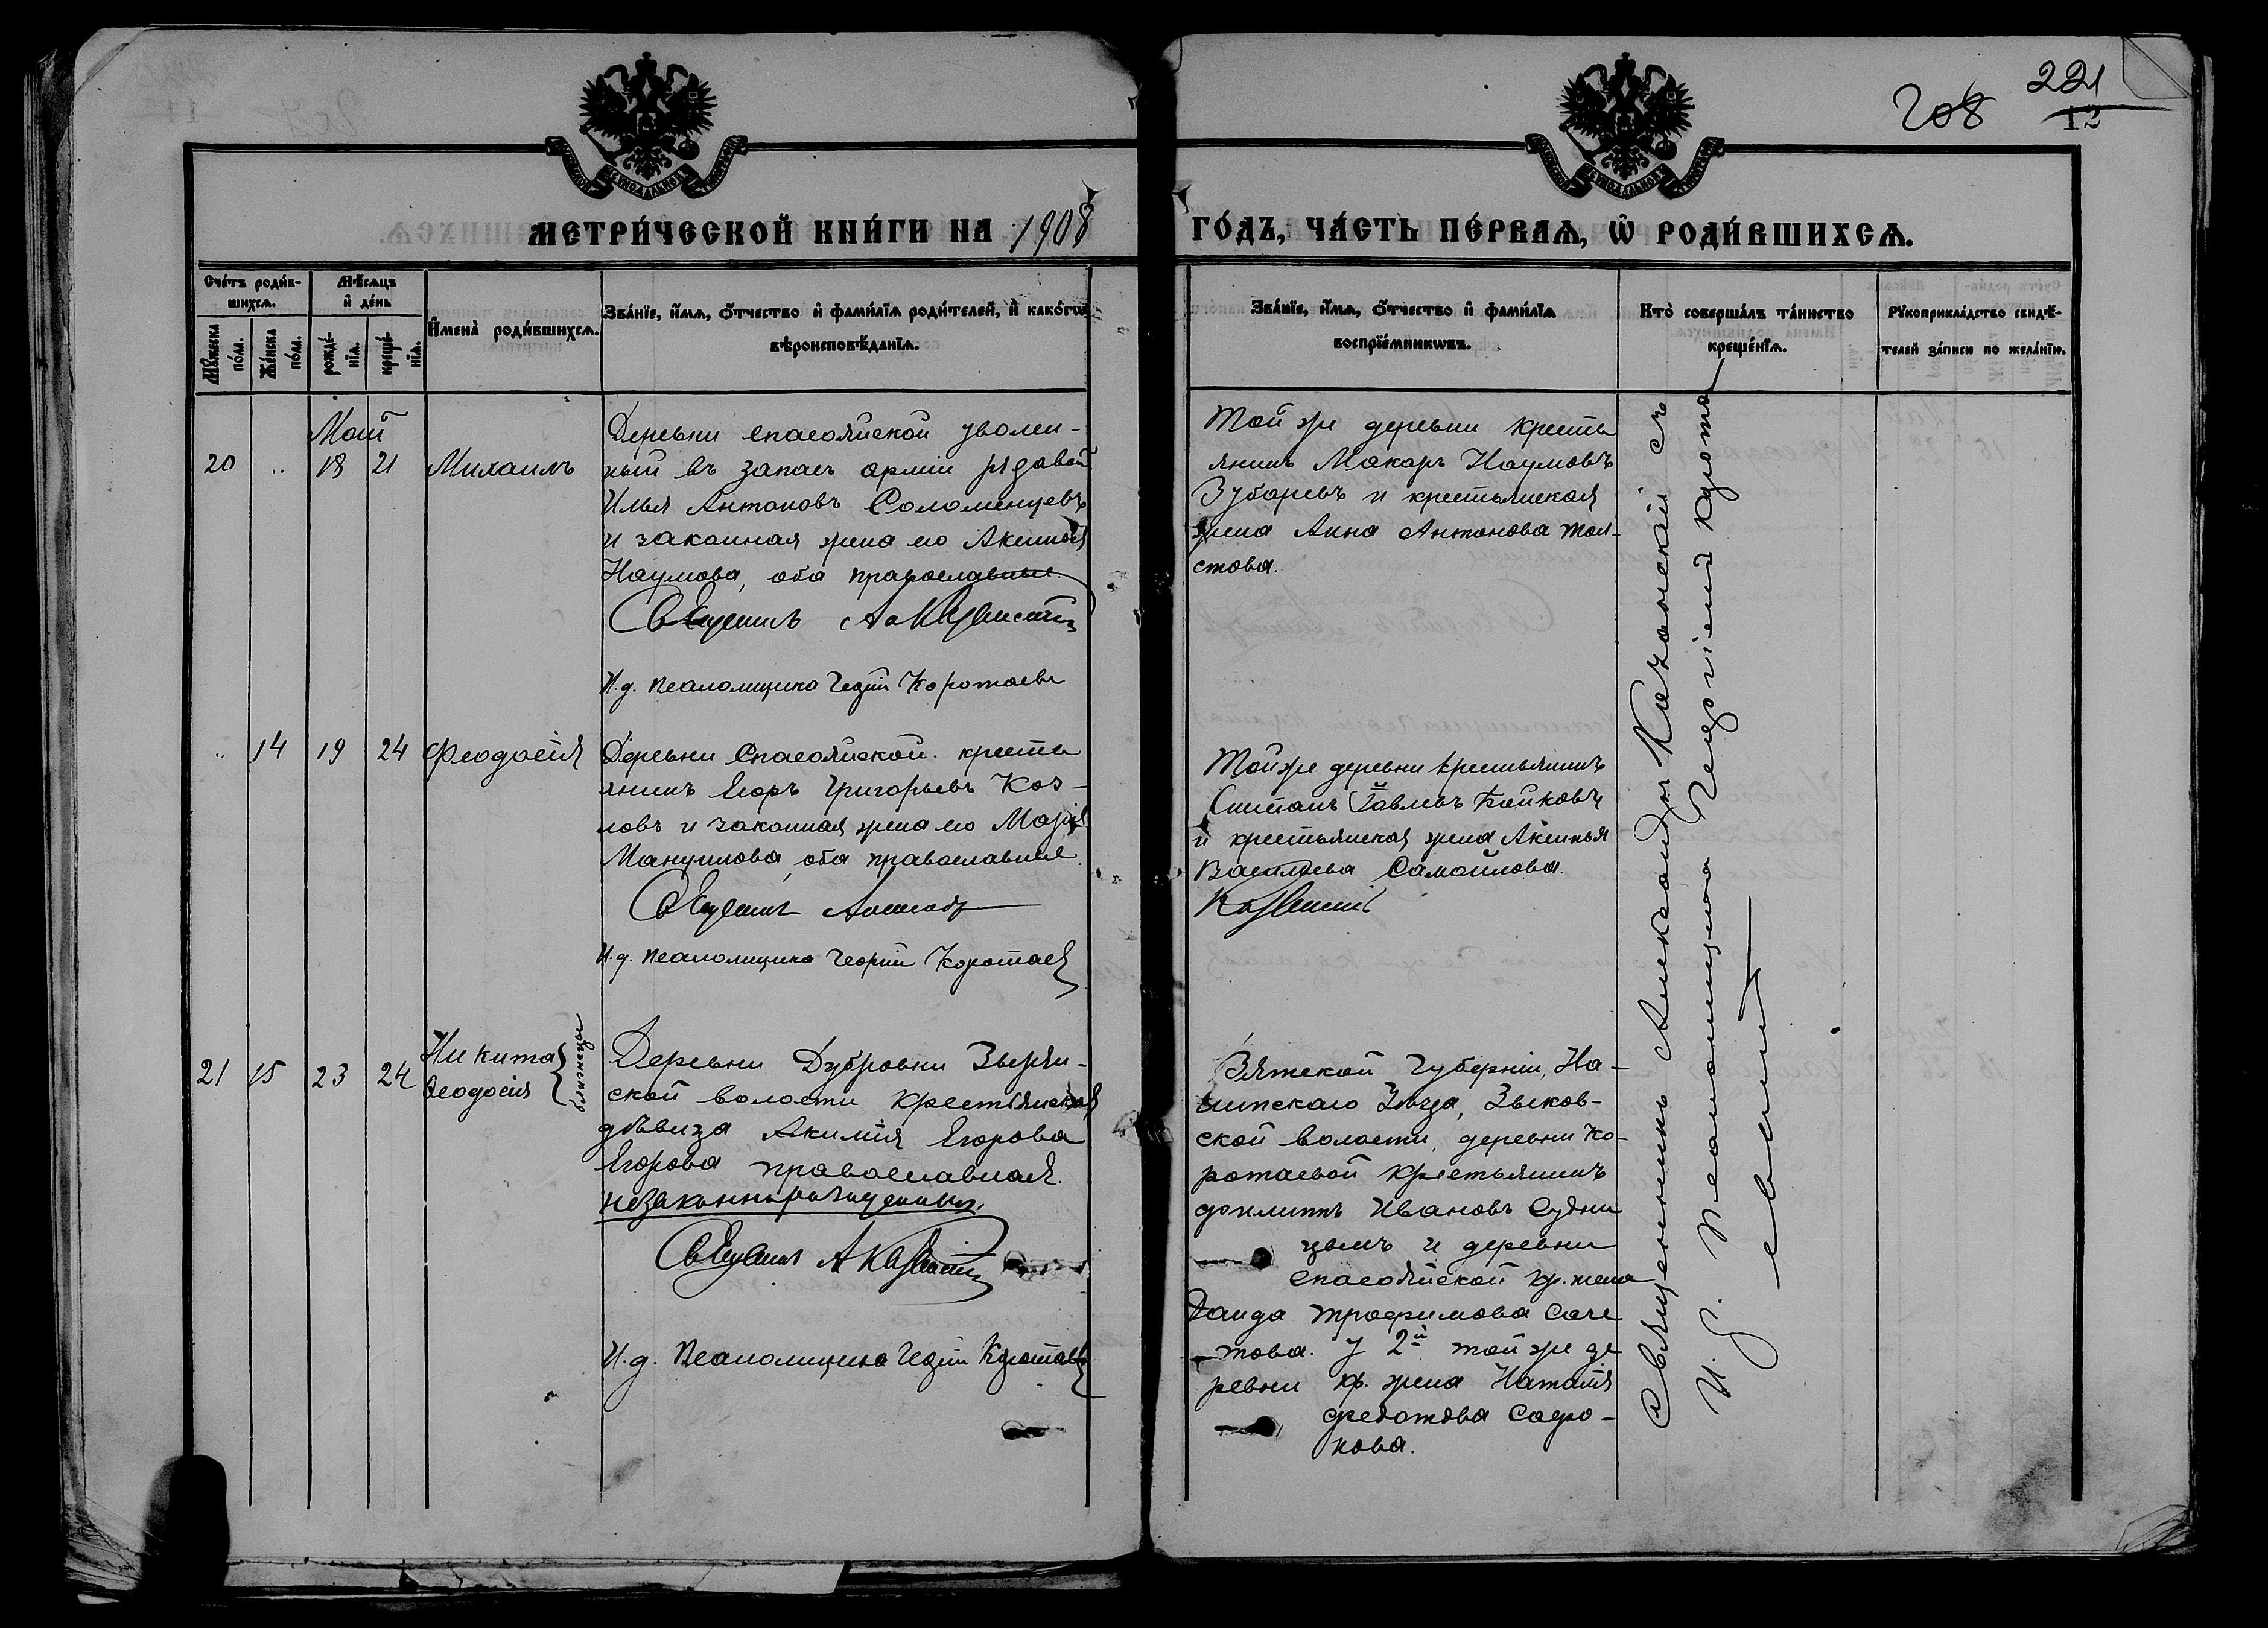 208 221
12
МЕТРИ́ЧЕСКОЙ КНИ́ГИ НА 1908
ГО́ДЪ, ЧА́СТЬ ПЕ́РВАѦ, Ѡ҆ РОДИ́ВШИХСѦ.
Сче́тъ роди́в-
шихсѧ.
Мѣ́сѧцъ
и҆ де́нь
Мꙋ́жеска по́ла.
Же́нска по́ла.
рожде́-
нїѧ.
креще́-
нїѧ.
И҆мена̀ роди́вшихсѧ.
Зва́нїе, и҆́мѧ, ѻ҆́тчество и҆ фами́лїѧ роди́телей, и҆ како́гѡ
вѣроисповѣ́данїѧ.
Зва́нїе, и҆́мѧ, ѻ҆́тчество и҆ фами́лїѧ
воспрїе́мникѡвъ.
Кто̀ соверша́лъ та́инство
креще́нїѧ.
Рꙋкоприкла́дство свидѣ́-
телей за́писи по жела́нїю.
Май
20 .. 18 21 Михаилъ
Деревни Спасояйской уволен-
ный въ запасъ арміи рядовой
Илья Антоновъ Соломенцевъ
и законная жена его Аксинья
Наумова, оба православные.
Священникъ
И.д. псаломщика Георгій Коротаевъ
Той же деревни кресть
янинъ Макаръ Наумовъ
Зубаревъ и крестьянская
жена Анна Антонова Тол-
стова.
.. 14 19 24 Феодосія
Деревни Спасояйской кресть
янинъ Егоръ Григорьевъ Коз-
ловъ и законная жена его Марія
Мануилова, оба православные.
Священникъ Александръ
И.д. псаломщика Георгій Коротаевъ
Той же деревни крестьянинъ
Степанъ Павловъ Бойковъ
и крестьянская жена Аксинья
Васильева Самойлова.
Казанскій
21 15 23 24 Никита
Феодосія
близнецы
Деревни Дубровки
ской волости крестьянская
дѣвица Акилина Егорова
Егорова православная.
незаконнорожденныя.
Священникъ А Казанскій
И.д. Псаломщика Георгій Коротаевъ
Вятской Губерніи, Но-
линскаго Уѣзда, Зыков-
ской волости, деревни Ко-
ротаевой крестьянинъ
Филиппъ Ивановъ Судни
цынъ и деревни
Спасояйской кр. жена
Трофимова Саче
това. У 2й той же де
ревни кр. жена Наталія
Федотова Сафо-
нова.
Священникъ Александръ Казанскій съ
И. д. Псаломщика Георгіемъ Корота
евымъ